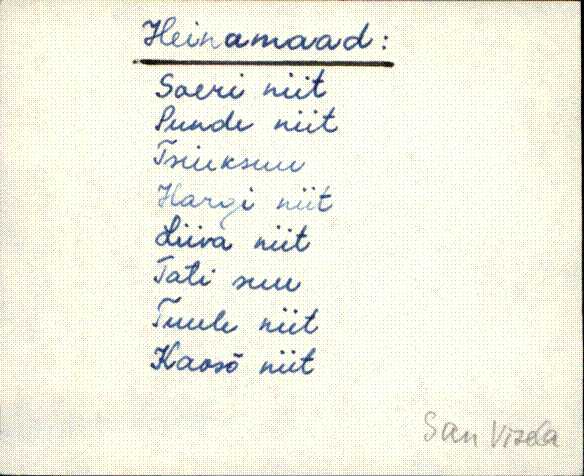 Heinamaad:
Soeri niit
Punde niit
Tsiuksuu
Hargi niit
Liiva niit
Tati suu
Tuule niit
Kaosõ niit
San Visela